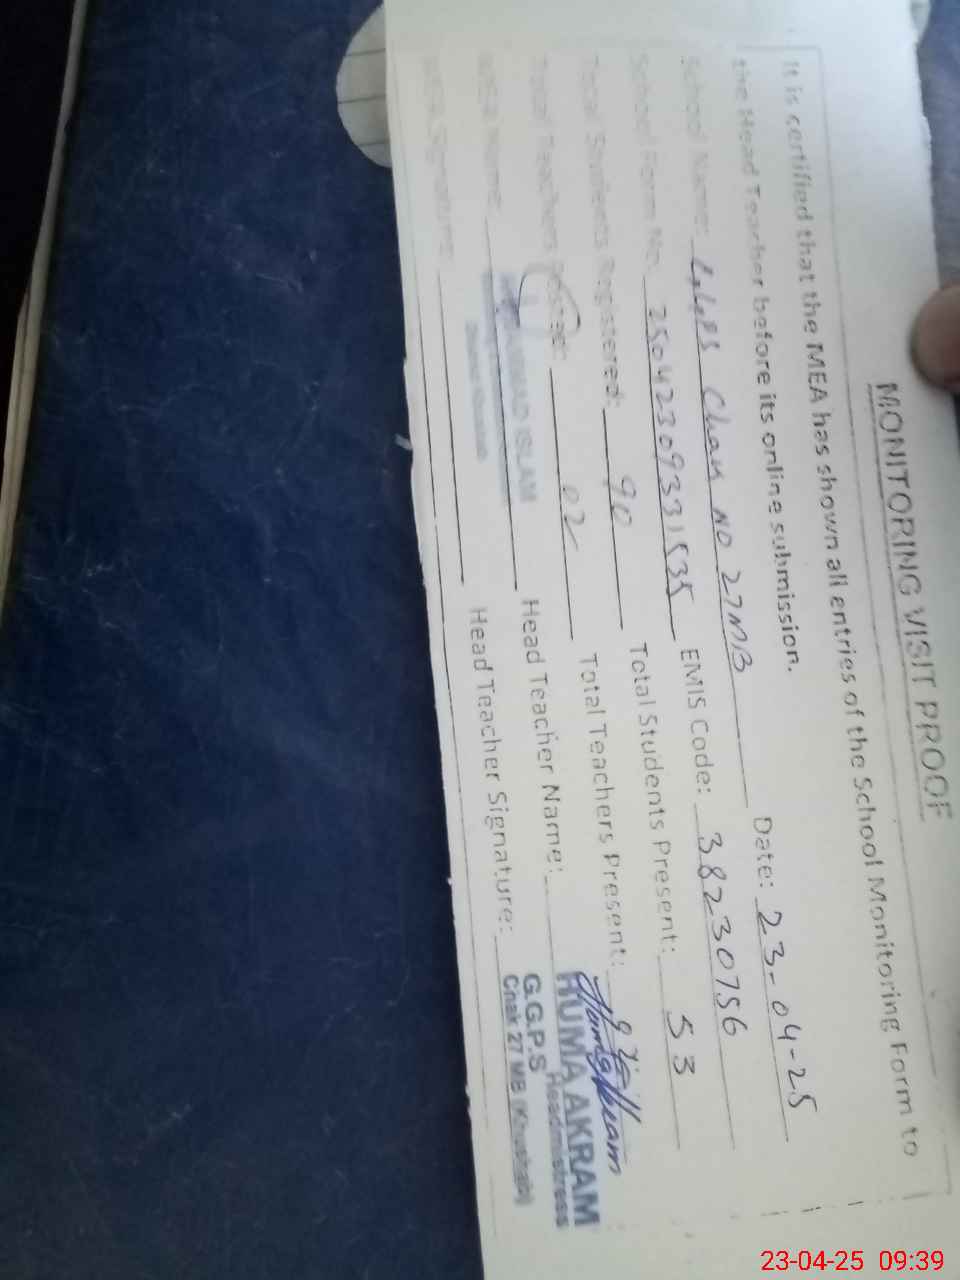 MONITORING VISIT PROOF
It is certified that the MEA has shown all entries of the School Monitoring Form to
the Head Teacher before its online submission.
School Name: GGPS Chak NO 27MB Date: 23-04-25
School Form No. 2504230931535 EMIS Code: 38230756
Total Students Registered: 90 Total Students Present: 53
Total Teachers Posted: 02 Total Teachers Present:
MEA Name: ISLAM Head Teacher Name: HUMA AKRAM
Headmistress
MEA Signature: Head Teacher Signature: G.G.P.S
Chak 27 MB (Khushab)
23-04-25 09:39